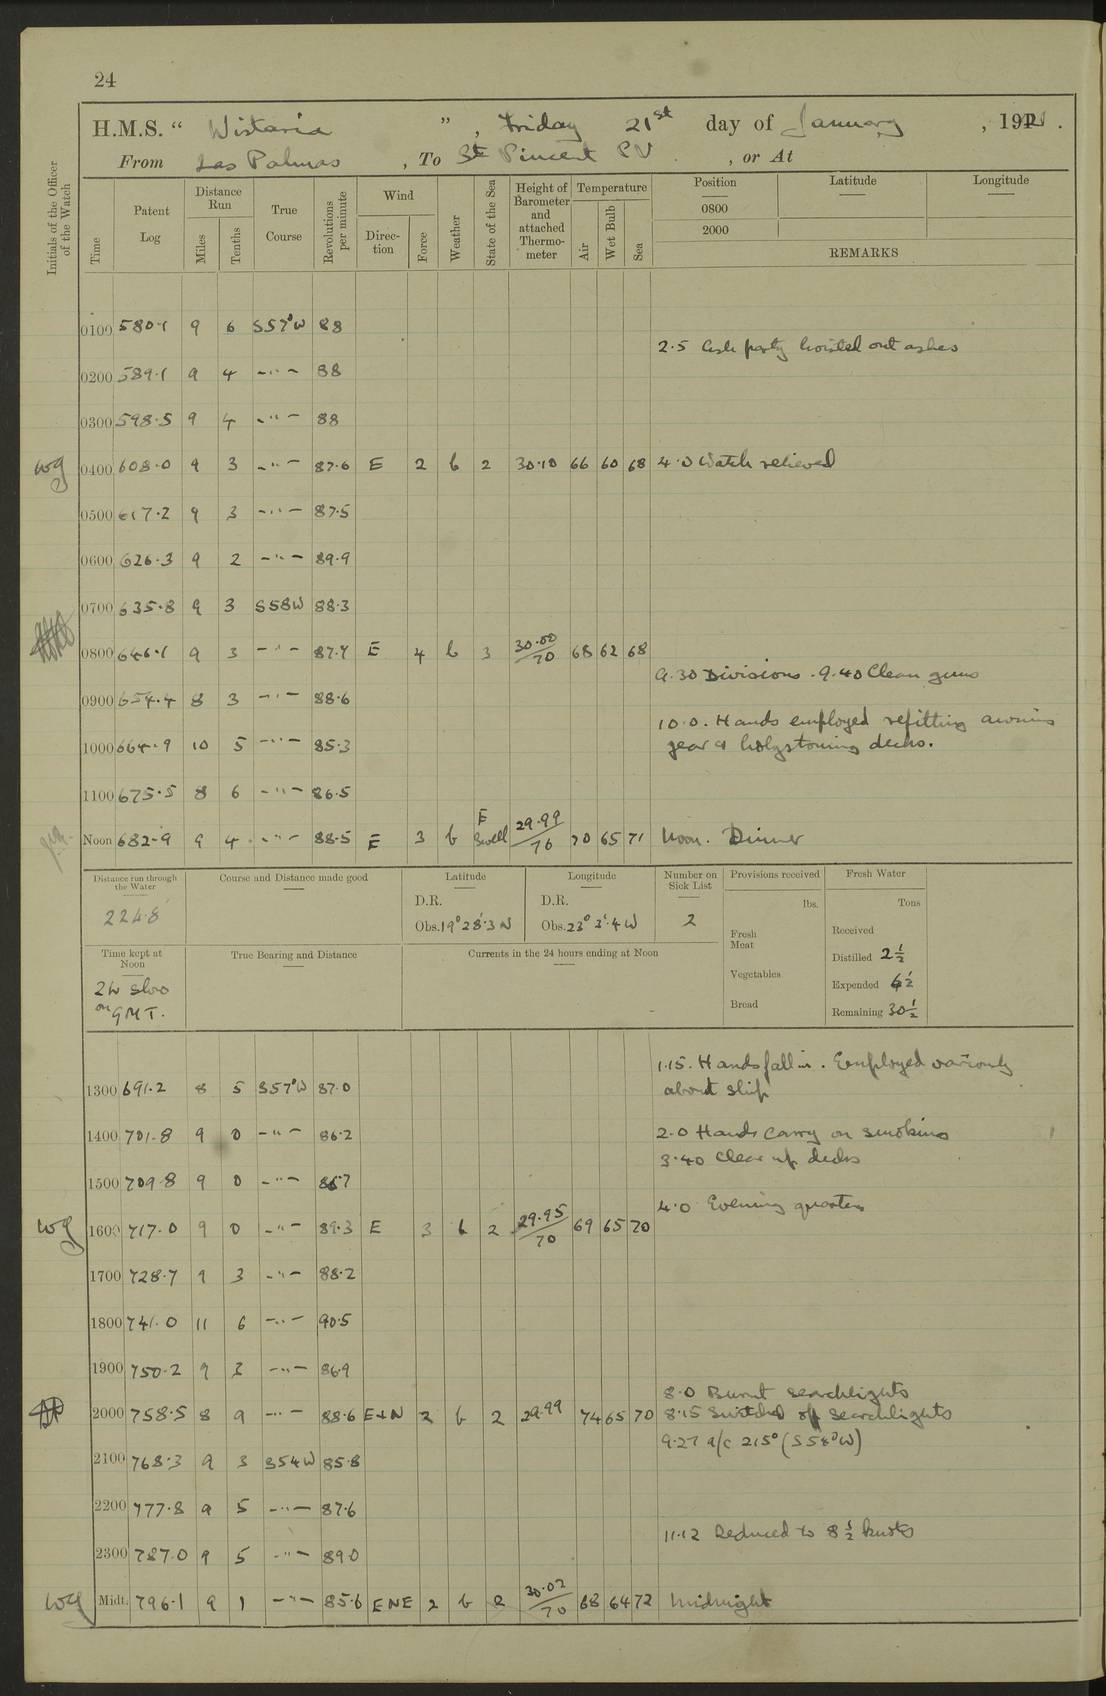 24
H.M.S. " Wistaria ", Friday 21st day of January, 1921.
From Las Palmas, To St Vincent CV, or At
Initials of the Officer of the Watch
Time
Patent Log
Distance Run
Miles
Tenths
True Course
Revolutions per minute
Wind
Direction
Force
Weather
State of the Sea
Height of Barometer and attached Thermometer
Temperature
Air
Wet Bulb
Sea
Position
Latitude
Longitude
0800
2000
REMARKS
0100 580·1 9 6 S57°W 88
2.5 Ash party hoisted out ashes
0200 589·1 9 4 -"- 88
0300 598·5 9 4 -"- 88
wg 0400 608·0 9 3 -"- 87·6 E 2 b 2 30·10 66 60 68 4·0 Watch relieved
0500 617·2 9 3 -"- 87·5
0600 626·3 9 2 -"- 89·9
0700 635·8 9 3 S58W 88·3
0800 646·1 9 3 -"- 87·4 E 4 b 3 30·00/70 68 62 68
9.30 Divisions. 9.40 Clean guns
0900 654·4 8 3 -"- 88·6
10.0. Hands employed refitting awning
1000 664·9 10 5 -"- 85·3 gear & holystoning decks.
1100 675·5 8 6 -"- 86·5
Noon 682·9 9 4 -"- 88·5 E 3 b E Swell 29·99/76 70 65 71 Noon. Dinner
Distance run through the Water
224·8
Course and Distance made good
Latitude
D.R.
Obs. 19° 28'·3 N
Longitude
D.R.
Obs. 23° 3'·4 W
Number on Sick List
2
Provisions received
lbs.
Fresh Meat
Vegetables
Bread
Fresh Water
Tons
Received
Distilled 2½
Expended 6½
Remaining 30½
Time kept at Noon
2h slow on GMT.
True Bearing and Distance
Currents in the 24 hours ending at Noon
1.15. Hands fall in. Employed variously
1300 691·2 8 5 S57°W 87·0 about ship
1400 701·8 9 0 -"- 86·2 2.0 Hands carry on smoking
3·40 Clear up decks
1500 709·8 9 0 -"- 86·7
4·0 Evening quarters
wg 1600 717·0 9 0 -"- 89·3 E 3 b 2 29·95/70 69 65 70
1700 728·7 9 3 -"- 88·2
1800 741·0 11 6 -"- 90·5
1900 750·2 9 3 -"- 86·9
8·0 Burnt searchlights
2000 758·5 8 9 -"- 88·6 E+N 2 b 2 29·99 74 65 70 8·15 Switched off searchlights
9·27 a/c 215° (S58°W)
2100 768·3 9 3 S54W 85·8
2200 777·8 9 5 -"- 87·6
11·12 Reduced to 8½ knots
2300 787·0 9 5 -"- 89·0
wg Midt. 796·1 9 1 -"- 85·6 ENE 2 b 2 30·02/70 68 64 72 Midnight